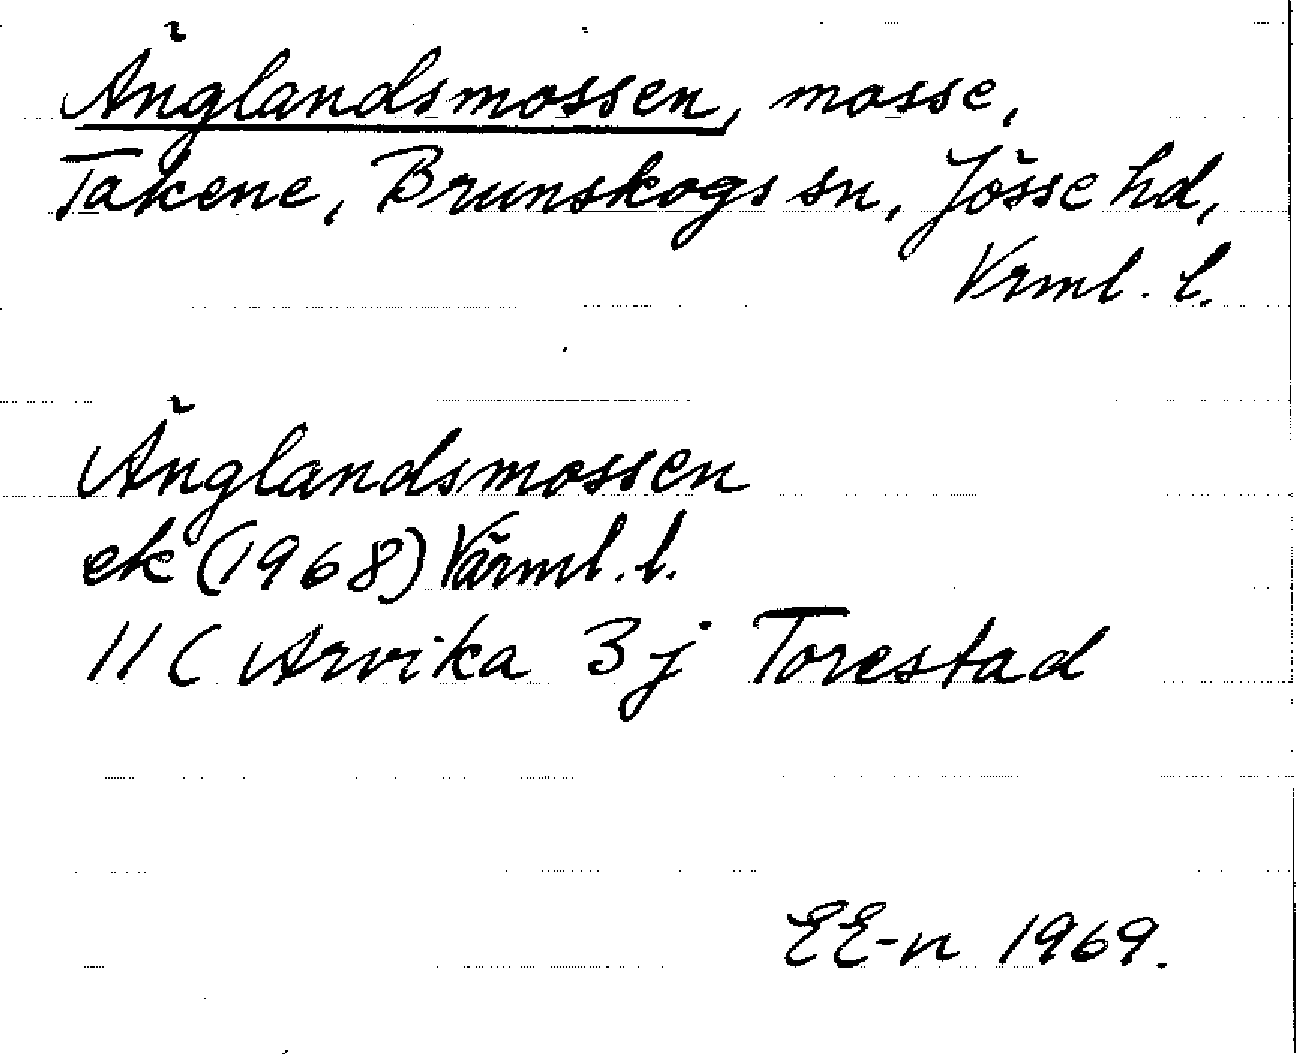 Änglandsmossen, mosse,
Takene, Brunskogs sn, Jösse hd,
Vrml. l.
Änglandsmossen
ek (1968) Värml. l.
11 C Arvika 3 j Torestad
EE-n 1969.